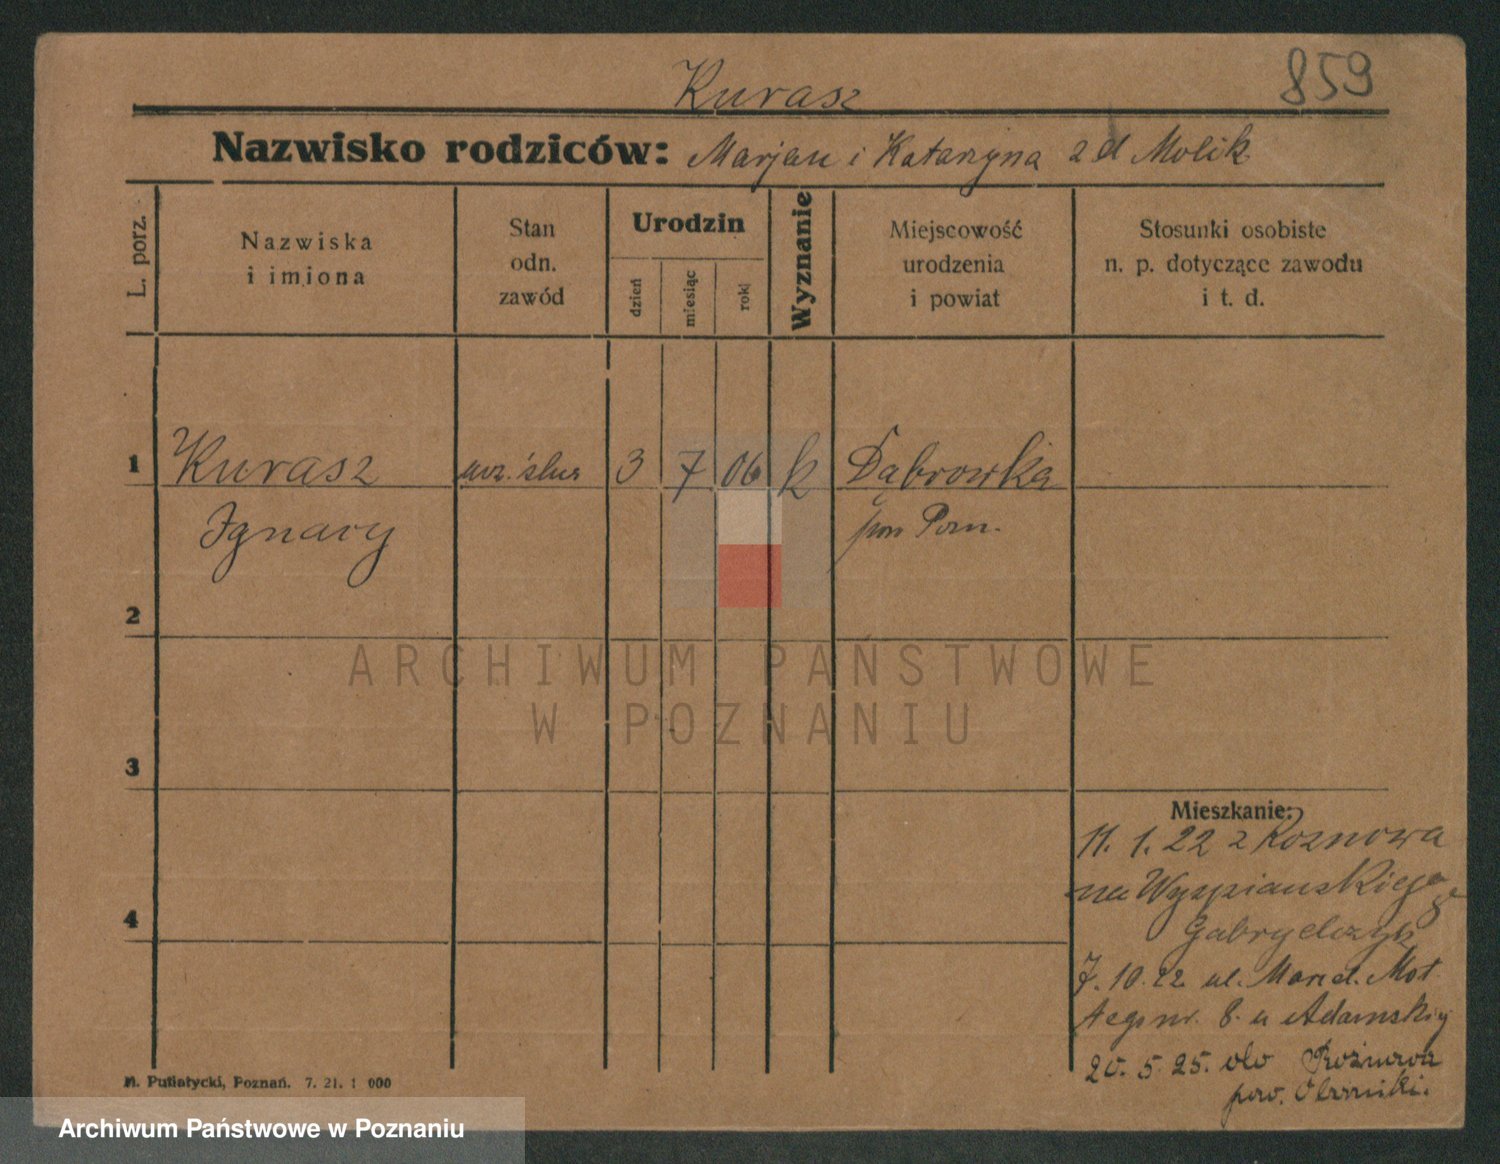 859
Kurasz
Nazwisko rodziców: Marjan i Katarzyna zd Molik
L. porz.
Nazwiska
i imiona
Stan
odn.
zawód
Urodzin
dzień
miesiąc
rok
Wyznanie
Miejscowość
urodzenia
i powiat
Stosunki osobiste
n. p. dotyczące zawodu
i t. d.
1 Kurasz ucz. ślus 3 7 06 k Dąbrowka
Ignacy pow Pozn.
2
ARCHIWUM PAŃSTWOWE
W POZNANIU
3
Mieszkanie:
11. 1. 22 z Rożnowa
na Wyspiańskiego
4
Gabryelczyk
7. 10. 22 ul. Mot
nr. 8. u Adamskiej
20. 5. 25. do Rożnowa
pow. Obornicki.
M. Putiatycki, Poznań. 7. 21. 1 000
Archiwum Państwowe w Poznaniu